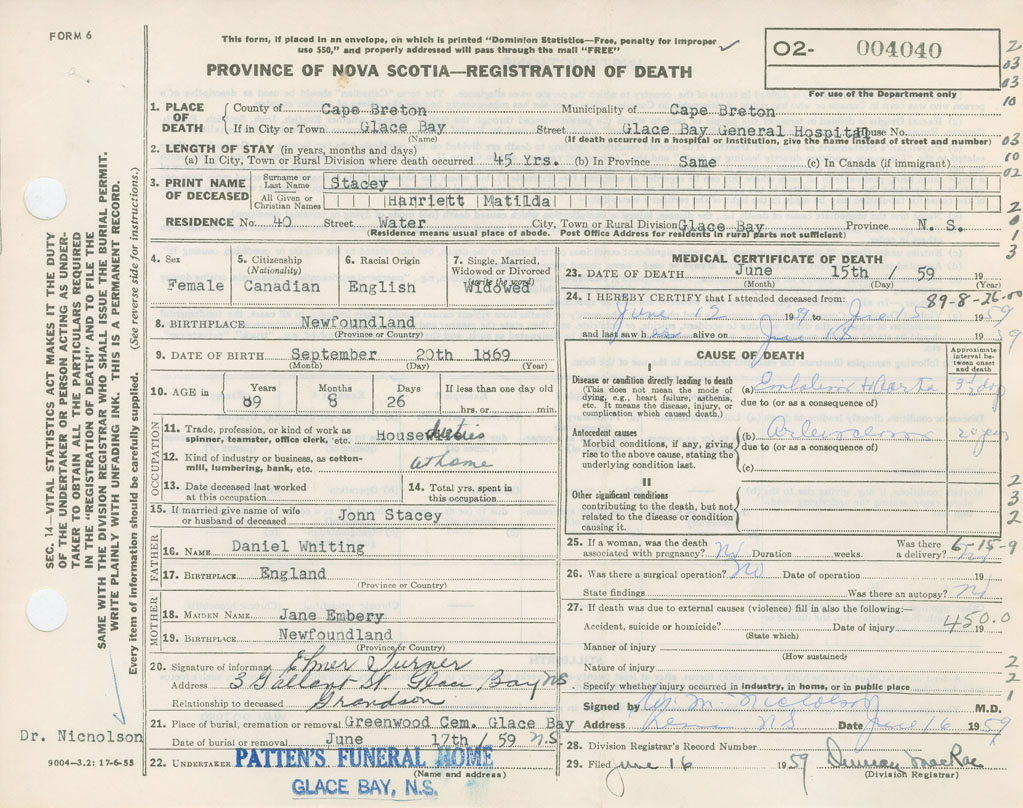 FORM 6
This form, if placed in an envelope, on which is printed "Dominion Statistics—Free, penalty for improper
use $50," and properly addressed will pass through the mail "FREE"
PROVINCE OF NOVA SCOTIA—REGISTRATION OF DEATH
O2- 004040
For use of the Department only
1. PLACE OF DEATH
County of Cape Breton Municipality of Cape Breton
If in City or Town Glace Bay Street Glace Bay General Hospital House No.
(Name) (If death occurred in a hospital or institution, give the name instead of street and number)
2. LENGTH OF STAY (in years, months and days)
(a) In City, Town or Rural Division where death occurred 45 Yrs. (b) In Province Same (c) In Canada (if immigrant)
3. PRINT NAME OF DECEASED
Surname or Last Name Stacey
All Given or Christian Names Harriett Matilda
RESIDENCE No. 40 Street Water City, Town or Rural Division Glace Bay Province N. S.
(Residence means usual place of abode. Post Office Address for residents in rural parts not sufficient)
4. Sex
Female
5. Citizenship
(Nationality)
Canadian
6. Racial Origin
English
7. Single, Married,
Widowed or Divorced
Widowed
8. BIRTHPLACE Newfoundland
(Province or Country)
9. DATE OF BIRTH September 20th 1869
(Month) (Day) (Year)
10. AGE in
Years Months Days If less than one day old
89 8 26 hrs. or min.
OCCUPATION
11. Trade, profession, or kind of work as
spinner, teamster, office clerk, etc. House duties
12. Kind of industry or business, as cotton-
mill, lumbering, bank, etc. at home
13. Date deceased last worked
at this occupation
14. Total yrs. spent in
this occupation
15. If married give name of wife
or husband of deceased John Stacey
FATHER
16. NAME Daniel Whiting
17. BIRTHPLACE England
(Province or Country)
MOTHER
18. MAIDEN NAME Jane Embery
19. BIRTHPLACE Newfoundland
(Province or Country)
20. Signature of informant Elmer Turner
Address 3 Gallant St Glace Bay NS
Relationship to deceased Grandson
21. Place of burial, cremation or removal Greenwood Cem. Glace Bay
Date of burial or removal June 17th / 59 N.S
22. UNDERTAKER PATTEN'S FUNERAL HOME
(Name and address)
GLACE BAY, N.S.
MEDICAL CERTIFICATE OF DEATH
23. DATE OF DEATH June 15th / 59 19
(Month) (Day) (Year)
24. I HEREBY CERTIFY that I attended deceased from: 89-8-26.00
June 12 19 to June 15 1959
and last saw h alive on June 19
CAUSE OF DEATH
Approximate
interval be-
tween onset
and death
I
Disease or condition directly leading to death
(This does not mean the mode of
dying, e.g., heart failure, asthenia,
etc. It means the disease, injury, or
complication which caused death.)
(a)
due to (or as a consequence of)
Antecedent causes
Morbid conditions, if any, giving
rise to the above cause, stating the
underlying condition last.
(b)
due to (or as a consequence of)
(c)
II
Other significant conditions
contributing to the death, but not
related to the disease or condition
causing it.
25. If a woman, was the death
associated with pregnancy? No Duration weeks. Was there
a delivery?
6-15-9
26. Was there a surgical operation? No Date of operation 19
State findings Was there an autopsy? No
27. If death was due to external causes (violence) fill in also the following:—
Accident, suicide or homicide? Date of injury 19
450.0
(State which)
Manner of injury
(How sustained)
Nature of injury
Specify whether injury occurred in industry, in home, or in public place
Signed by M. Nicholson M.D.
Address NS Date June 16 1959
28. Division Registrar's Record Number
29. Filed June 16 1959 Duncan MacRae
(Division Registrar)
SEC. 14—VITAL STATISTICS ACT MAKES IT THE DUTY
OF THE UNDERTAKER OR PERSON ACTING AS UNDER-
TAKER TO OBTAIN ALL THE PARTICULARS REQUIRED
IN THE "REGISTRATION OF DEATH" AND TO FILE THE
SAME WITH THE DIVISION REGISTRAR WHO SHALL ISSUE THE BURIAL PERMIT.
WRITE PLAINLY WITH UNFADING INK. THIS IS A PERMANENT RECORD.
Every item of information should be carefully supplied. (See reverse side for instructions.)
Dr. Nicholson
9004—3.2: 17-6-55
2
03
03
10
03
10
02
2
0
1
3
2
3
2
2
2
1